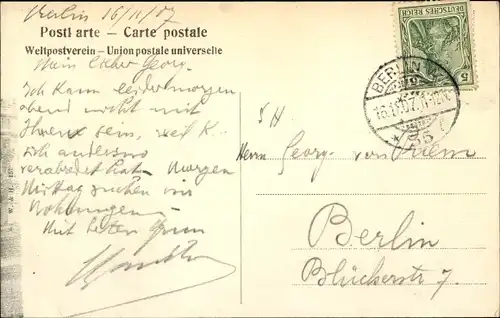 Berlin 16/11/07
Postkarte — Carte postale
Weltpostverein – Union postale universelle
Mein lieber Georg.
Ich kann leider morgen
abend nicht mit
Ihnen sein, weil K.
sich anderswo
verabredet hat. Morgen
Mittag suchen wir
Wohnungen
Mit besten Gruss
DEUTSCHES REICH
5
BERLIN W
35
S H
Herrn Georg von
Berlin
Blücherstr 7.